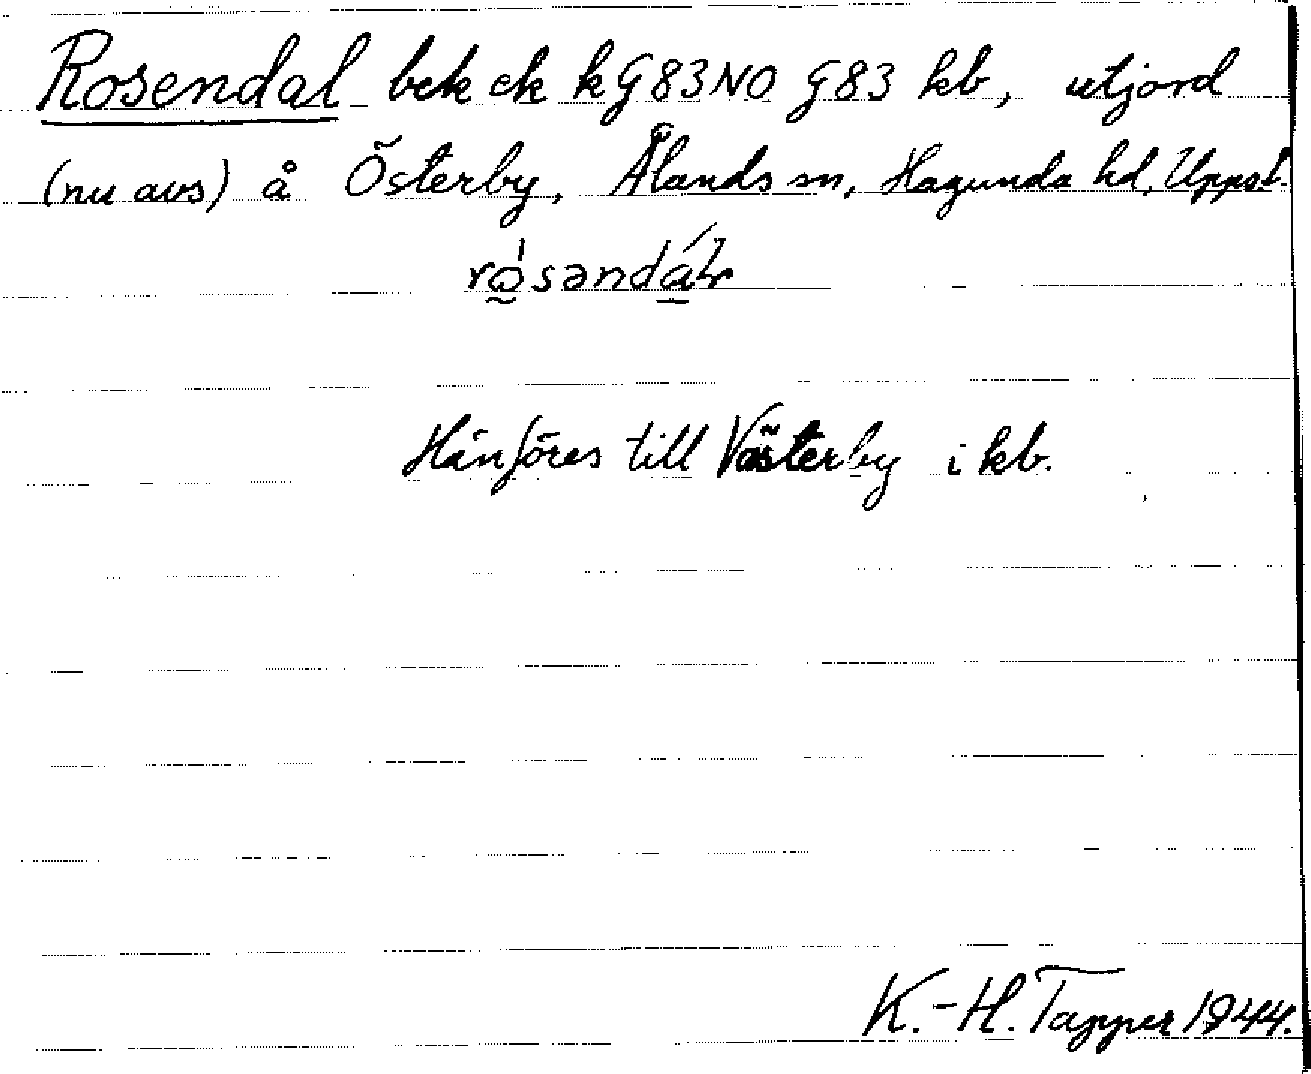 Rosendal bek ek kG83NO G83 kb, utjord
(nu avs) å Österby, Ålands sn, Hagunda hd, Uppsl.
Hänföres till Västerby i kb.
K.-H. Tapper 1944.